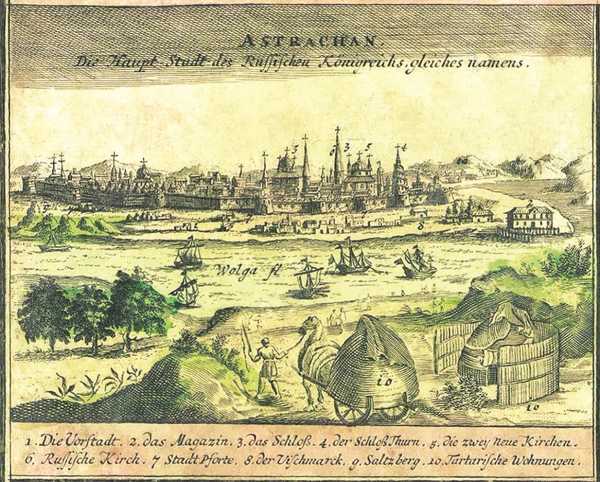 ASTRACHAN.
Die Haupt-Stadt des Russischen Königreichs, gleiches namens.
5 3. 5 4
Wolga fl
10
10
1. Die Vorstadt. 2. das Magazin. 3. das Schloß. 4. der Schloß Thurn. 5. die zwey neue Kirchen.
6. Russische Kirch. 7 Stadt Pforte. 8. der Vischmarck. 9. Saltzberg. 10. Tartarische Wohnungen.